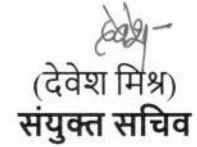 देवेश-
(देवेश मिश्र)
संयुक्त सचिव